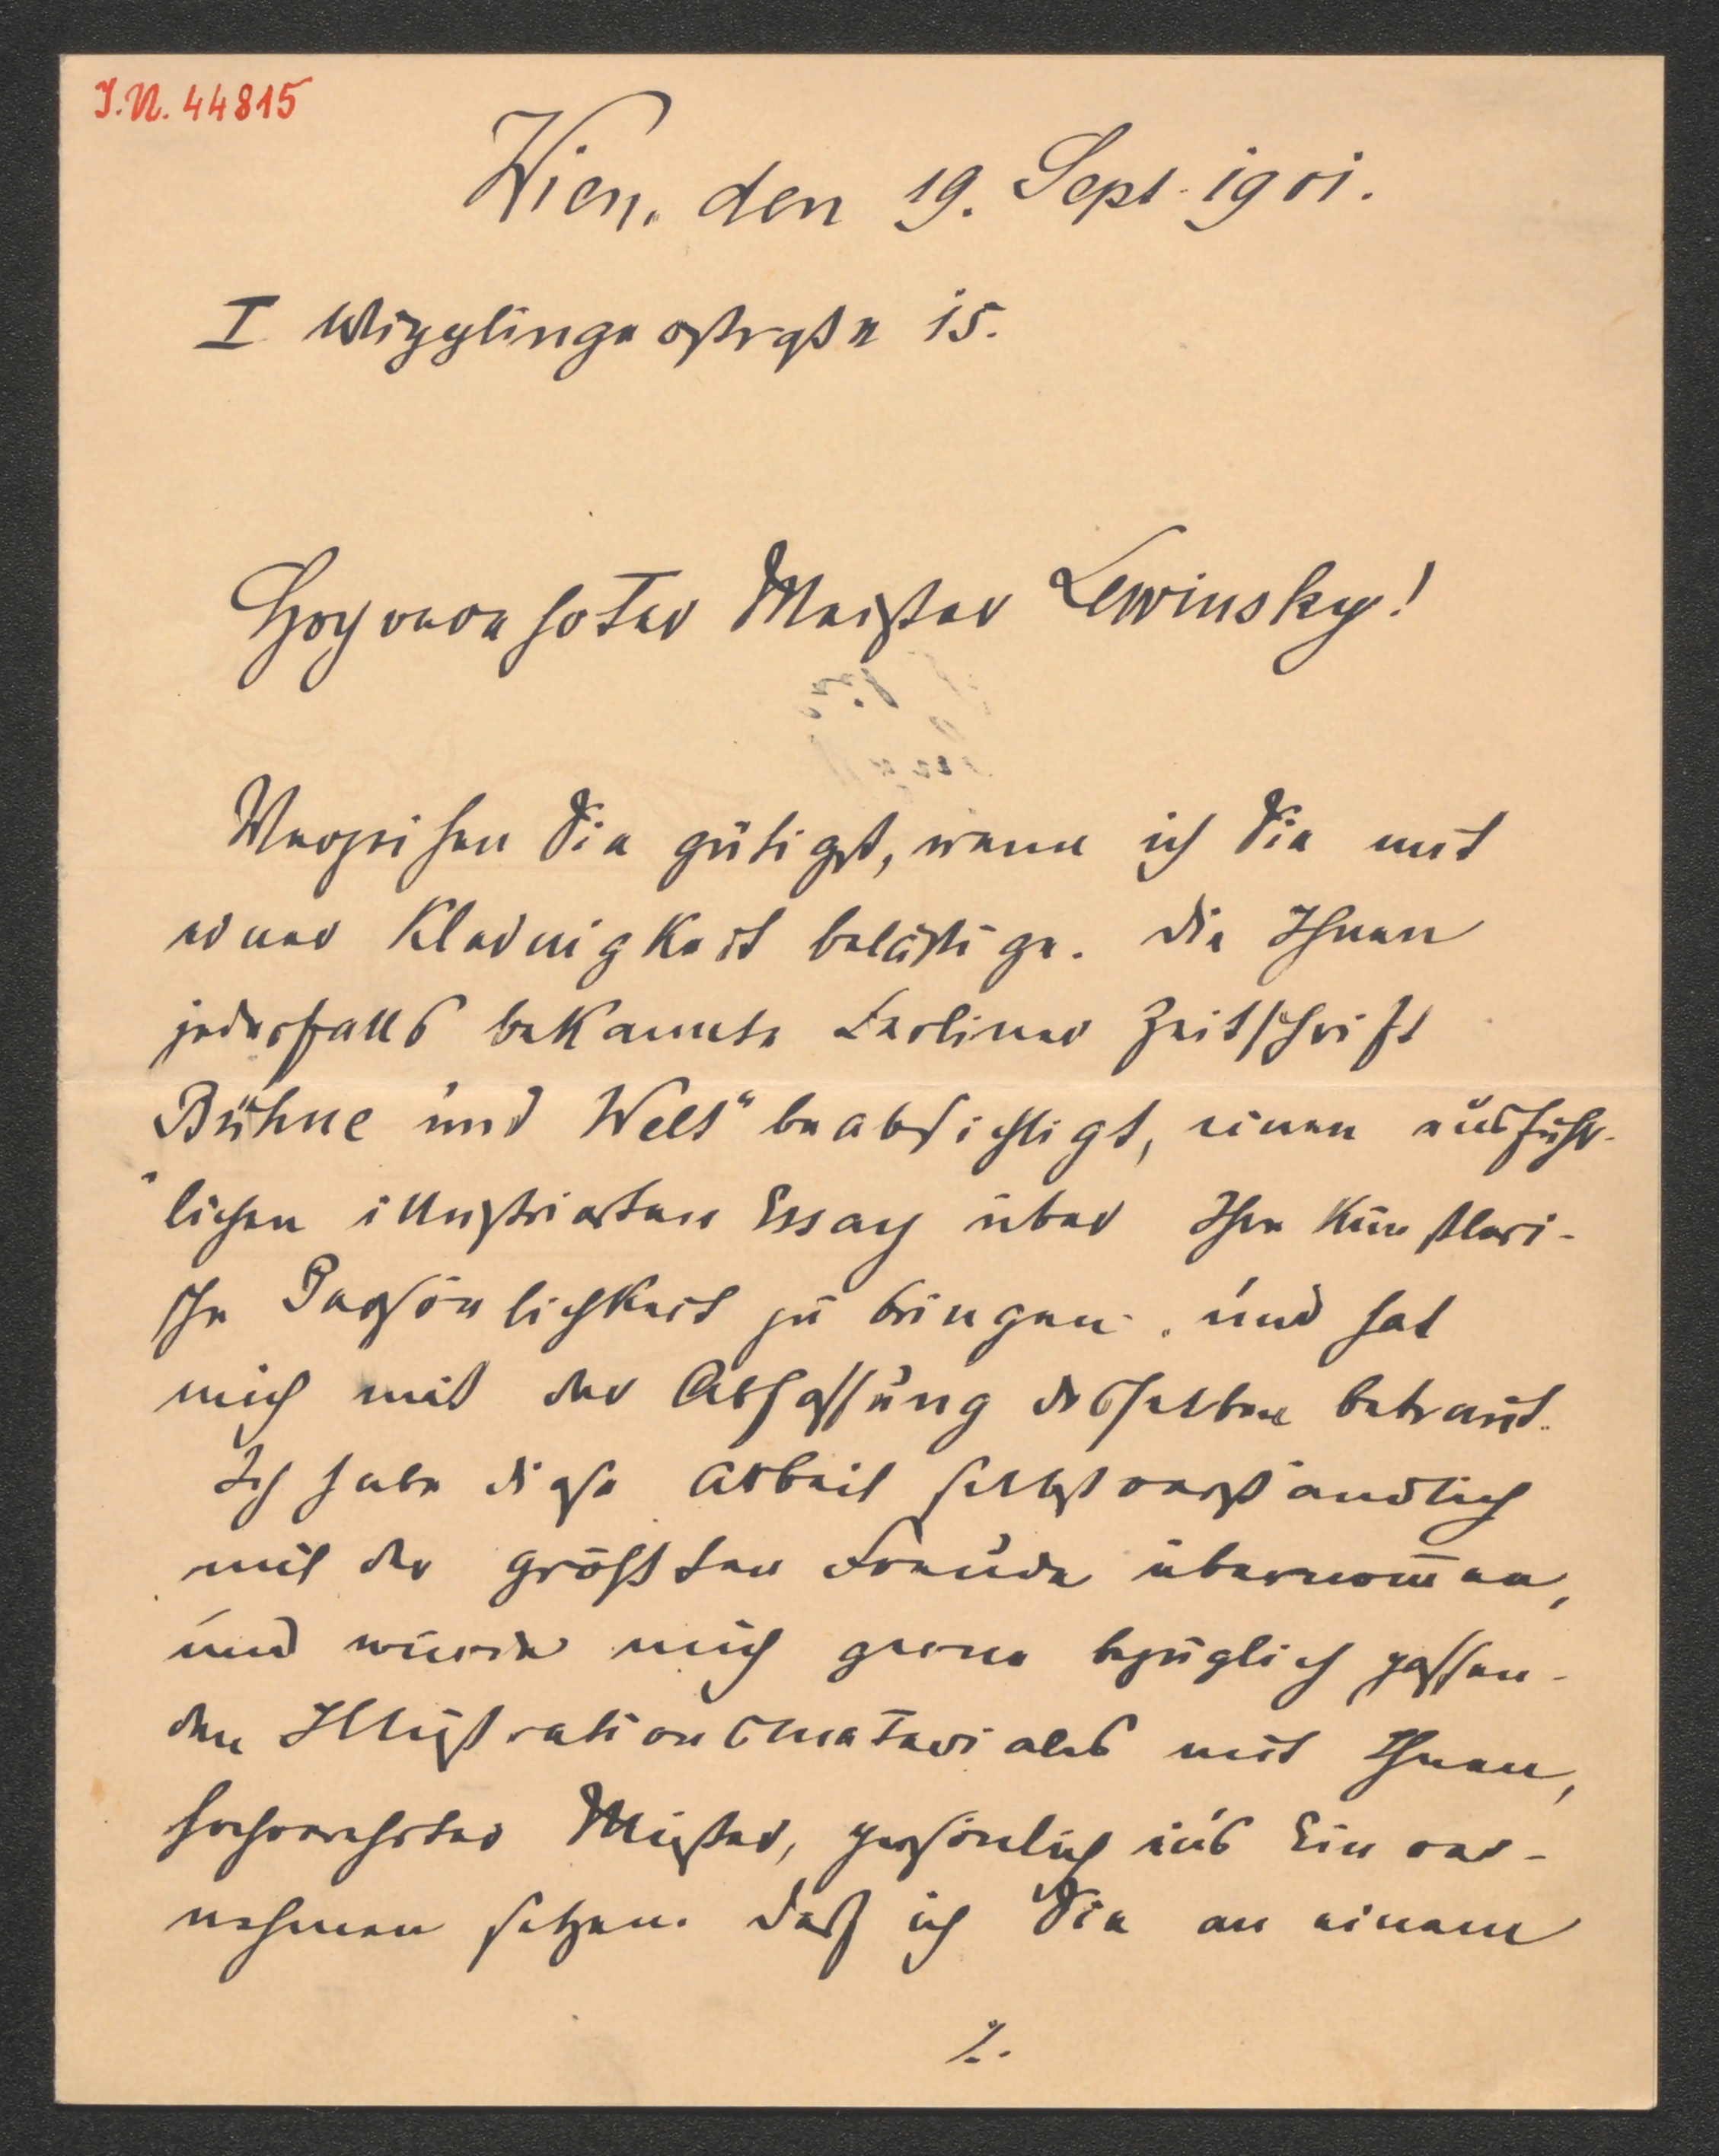 I.N. 44815
Wien, den 19. Sept. 1901.
I Wipplingerstraße 15.
Hochverehrter Meister Lewinsky!
Verzeihen Sie gütigst, wenn ich Sie mit
einer Kleinigkeit belästige. Die Ihnen
jedesfalls bekannte Berliner Zeitschrift
„Bühne und Welt“ beabsichtigt, einen ausführ-
lichen illustrierten Essay über Ihre künstleri-
sche Persönlichkeit zu bringen, und hat
mich mit der Abfassung desselben betraut.
Ich habe diese Arbeit selbstverständlich
mit der größten Freude übernom̄en,
und würde mich gerne bezüglich passen-
den Illustrationsmateriales mit Ihnen,
hochverehrter Meister, persönlich ins Einver-
nehmen setzen. Daß ich Sie an einem
%.